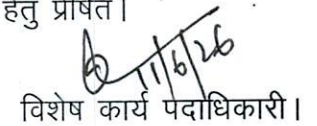 हेतु प्रेषित।
11/6/26
विशेष कार्य पदाधिकारी।